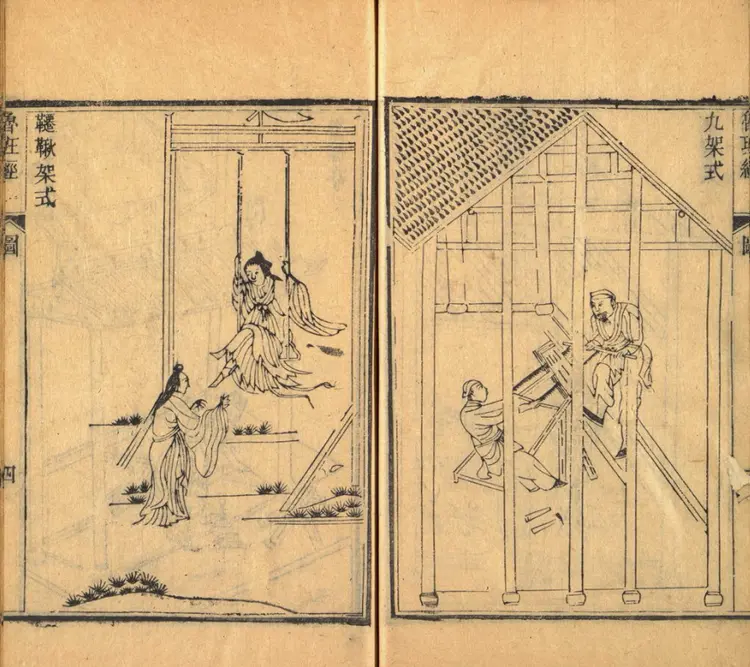 魯班經
圖
九架式
韆鞦架式
魯班經
圖
四